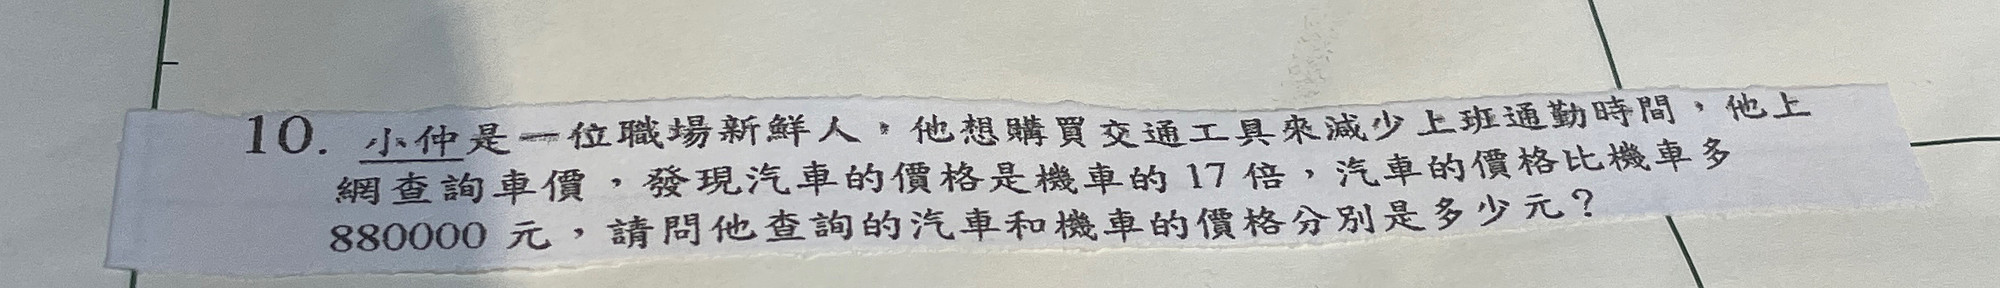 10. 小仲是一位職場新鮮人，他想購買交通工具來減少上班通勤時間，他上
網查詢車價，發現汽車的價格是機車的 17 倍，汽車的價格比機車多
880000 元，請問他查詢的汽車和機車的價格分別是多少元？